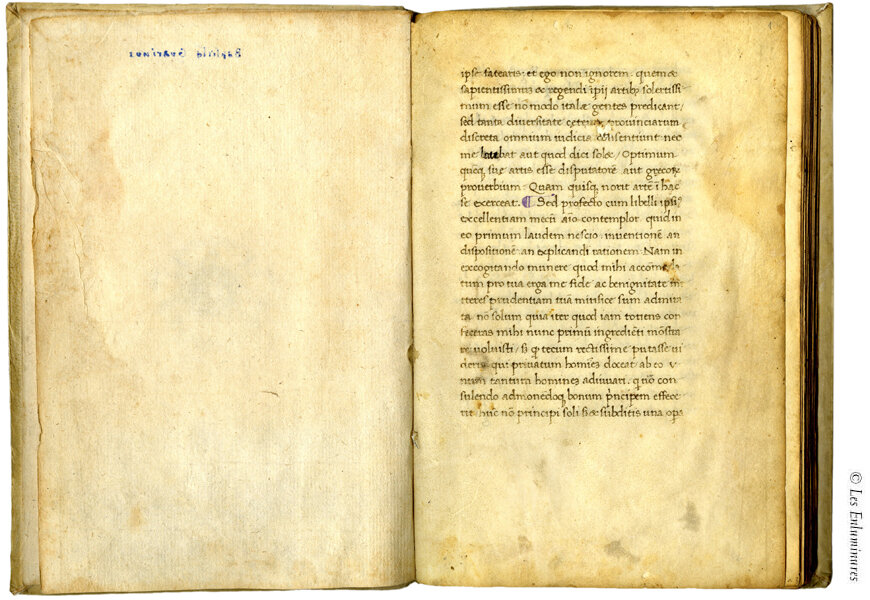 Baptista Guarinus
ipse fatearis: et ego non ignorem. quem ac
sapientissimum ac regendi ipīi artibꝫ solertissi
mum esse nō modo italæ gentes predicant/
sed tanta diversitate provinciarum
discreta omnium iudicia cōsentiunt nec
me bat aut quod dici solet/ Optimum
quēqꝫ suę artis esse disputatorē aut grecoꝝ
proverbium. Quam quisqꝫ norit artē ī hac
se exerceat. ¶ Sed profecto cum libelli ipsiꝰ
excellentiam mecū contemplor quid in
eo primum laudem nescio. inventionē an
dispositionē an explicandi rationem Nam in
excogitando munere quod mihi accōmoda
tum pro tua erga me fide ac benignitate m
teres prudentiam tuā mirifice sum admira
ta. nō solum quia iter quod iam totiens con
feceras mihi nunc primū ingrediēti mōstra
re voluisti/ sꝫ qꝫ tecum rectissime putasse vi
deris qui privatum homīes doceat ab eo v
num tantum homines adiuvari. q̄ nō con
sulendo admonendoqꝫ bonum pncipem effece
rit hūc nō principi soli sed subditis una opa
© Les Enluminures